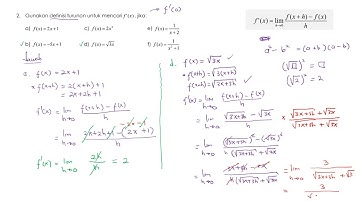 → f'(a)
2. Gunakan definisi turunan untuk mencari f'(x), jika:
a) f(x)=2x+1 c) f(x)=2x² e) f(x)=1/(x+2)
b) f(x)=-5x+1 d) f(x)=√3x
f'(x)=lim h→0 (f(x+h)-f(x))/h
a²-b² = (a+b)(a-b)
(√2)² = 2
Jawab
a. f(x) = 2x+1
f(x+h) = 2(x+h)+1
= 2x+2h+1
f'(x) = lim h→0 (f(x+h)-f(x))/h
= lim h→0 (2x+2h+1-(2x+1))/h
f'(x) = lim h→0 2h/h = 2
d. f(x) = √3x
f(x+h) = √3(x+h)
f(x+h) = √3x+3h
f'(x) = lim h→0 (f(x+h)-f(x))/h
= lim h→0 (√3x+3h-√3x)/h × (√3x+3h+√3x)/(√3x+3h+√3x)
= lim h→0 ((√3x+3h)²-(√3x)²)/(h(√3x+3h+√3x))
= lim h→0 (3x+3h-3x)/(h(√3x+3h+√3x)) = lim h→0 3/(√3x+3h+√3
= 3